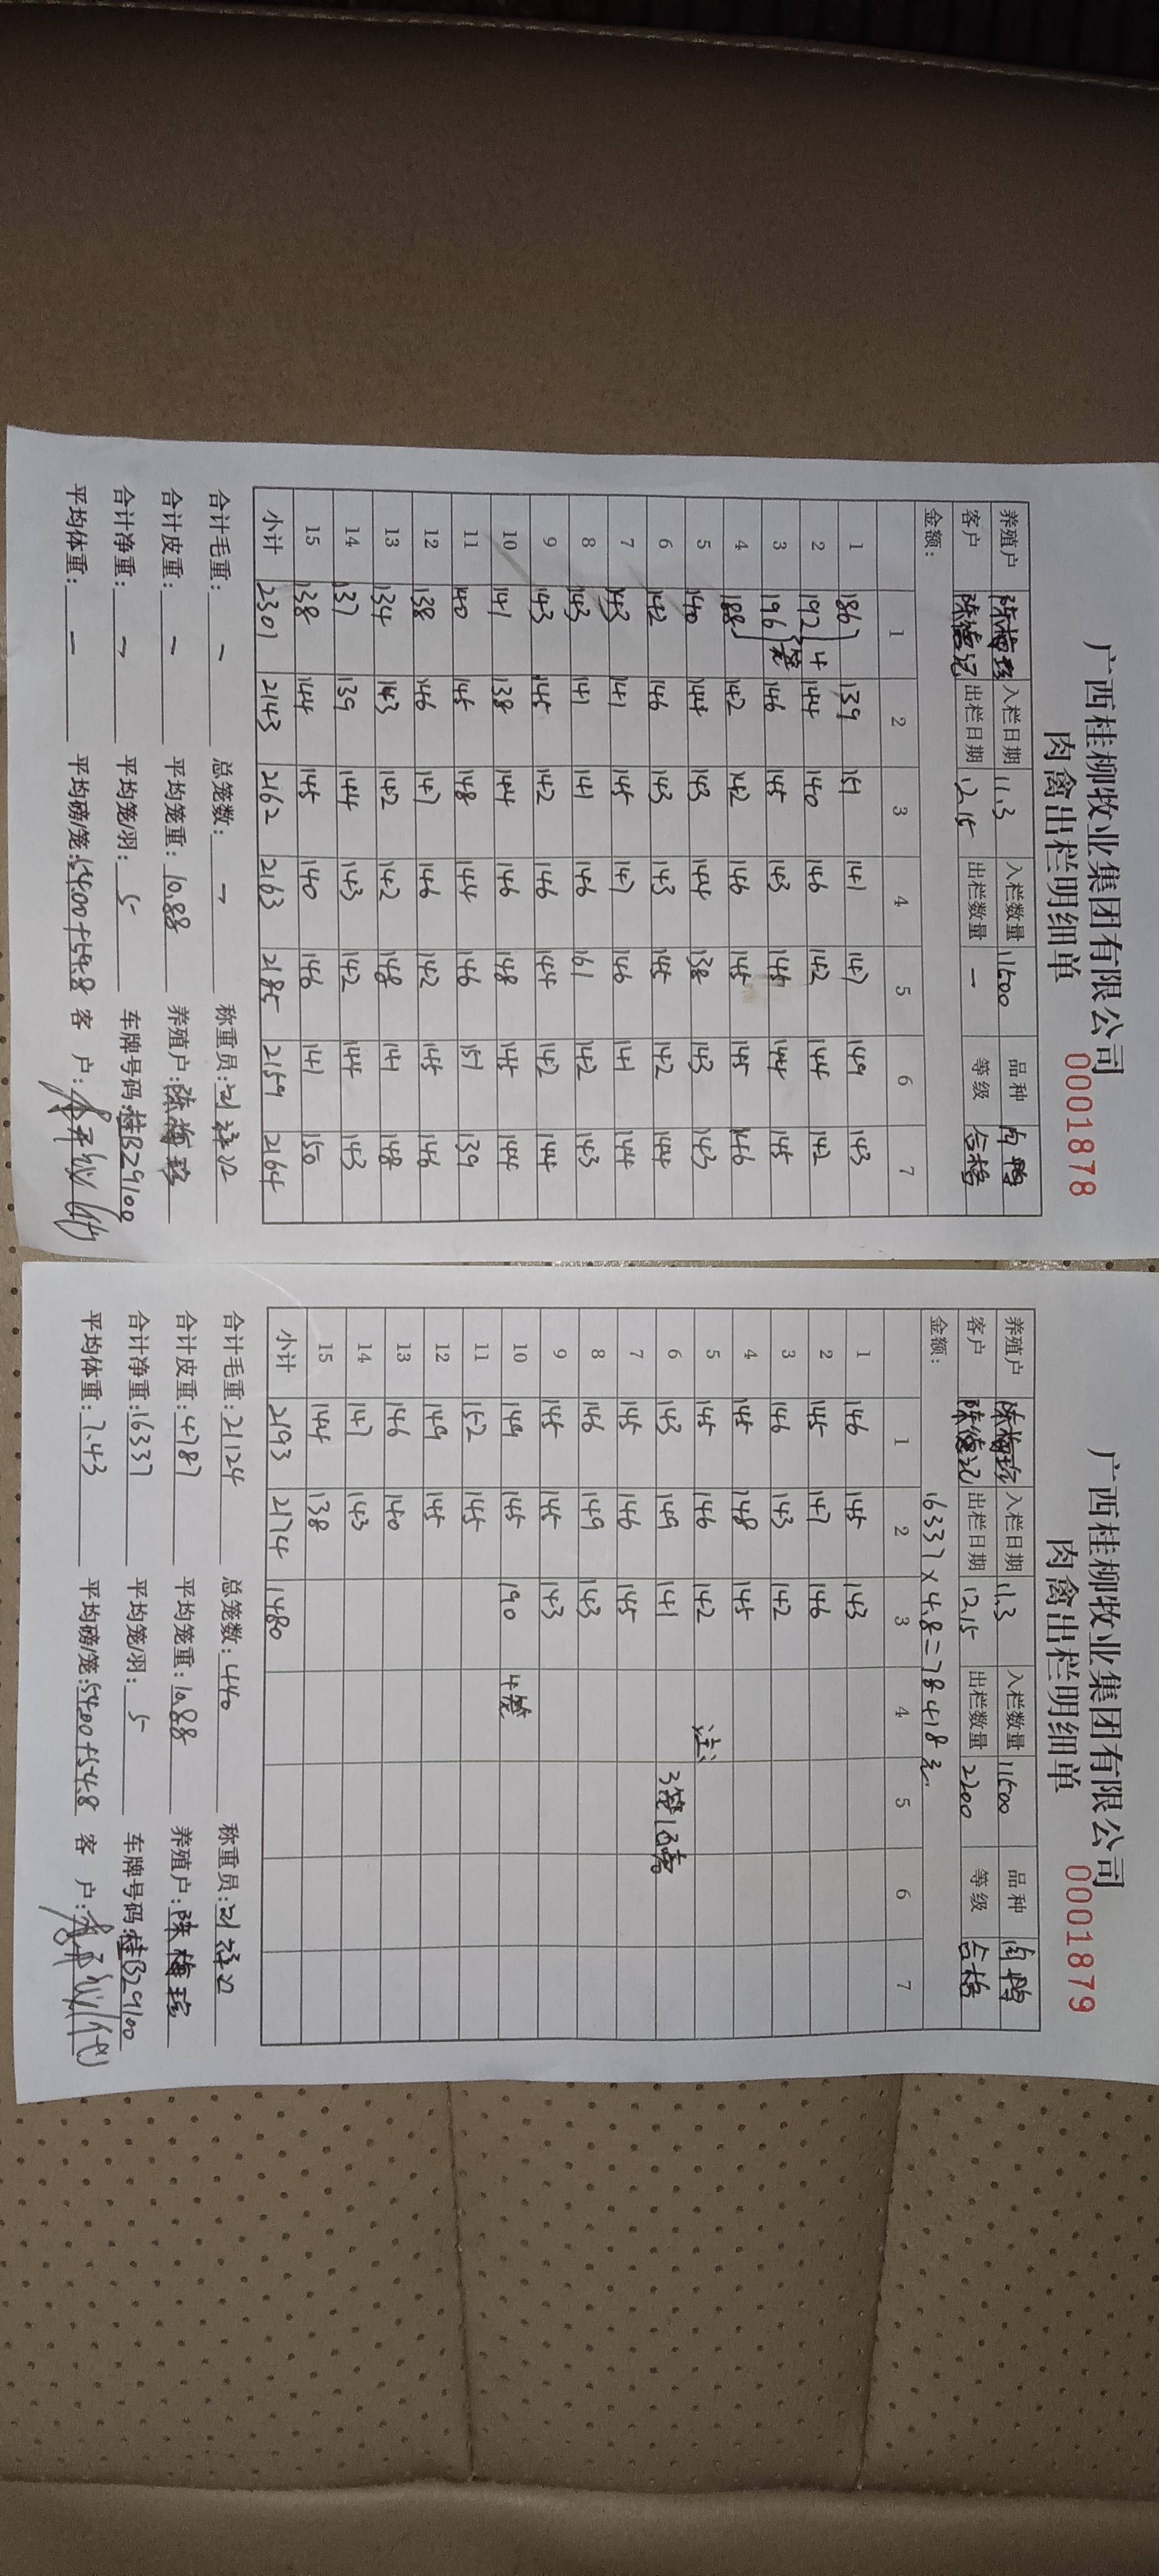 广西桂柳牧业集团有限公司
肉禽出栏明细单 0001878
养殖户 陈梅珍 入栏日期 11.3 入栏数量 11500 品种 肉鸭
客户 陈德记 出栏日期 12.15 出栏数量 — 等级 合格
金额:
1 2 3 4 5 6 7
1 186 139 151 141 147 149 143
2 192 4 144 140 146 142 144 142
3 196 笼 146 145 143 145 144 145
4 188 142 142 146 145 145 146
5 140 144 143 144 138 143 143
6 142 146 143 143 145 142 144
7 143 141 145 147 146 141 144
8 143 141 141 146 161 142 143
9 143 145 142 146 144 142 144
10 141 138 144 146 148 145 144
11 140 145 148 144 146 151 139
12 138 146 147 146 142 145 146
13 134 143 142 142 148 141 148
14 137 139 144 143 142 144 143
15 138 144 145 140 146 141 150
小计 2301 2143 2162 2163 2185 2159 2164
合计毛重: — 总笼数: — 称重员:
合计皮重: — 平均笼重: 10.88 养殖户: 陈梅珍
合计净重: — 平均笼/羽: 5 车牌号码: 桂B29100
平均体重: — 平均磅/笼: 5400+54.8 客 户:
广西桂柳牧业集团有限公司
肉禽出栏明细单 0001879
养殖户 陈梅珍 入栏日期 11.3 入栏数量 11500 品种 肉鸭
客户 陈德记 出栏日期 12.15 出栏数量 2200 等级 合格
金额: 16337×4.8=78418元
1 2 3 4 5 6 7
1 146 145 143
2 145 147 146
3 146 143 142
4 145 148 145
5 145 146 142 注:
6 143 149 141 3笼1百毒
7 145 146 145
8 146 149 143
9 145 145 143
10 149 145 190 4笼
11 152 145
12 149 145
13 146 140
14 147 143
15 144 138
小计 2193 2174 1480
合计毛重: 21124 总笼数: 440 称重员:
合计皮重: 4787 平均笼重: 10.88 养殖户: 陈梅珍
合计净重: 16337 平均笼/羽: 5 车牌号码: 桂B29100
平均体重: 7.43 平均磅/笼: 5400+54.8 客 户: